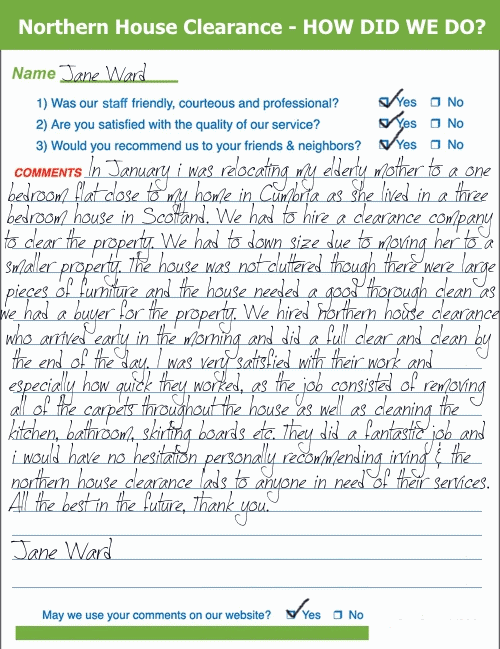 Northern House Clearance - HOW DID WE DO?
Name Jane Ward
1) Was our staff friendly, courteous and professional? Yes No
2) Are you satisfied with the quality of our service? Yes No
3) Would you recommend us to your friends & neighbors? Yes No
COMMENTS In January i was relocating my elderly mother to a one
bedroom flat close to my home in Cumbria as she lived in a three
bedroom house in Scotland. We had to hire a clearance company
to clear the property. We had to down size due to moving her to a
smaller property. The house was not cluttered though there were large
pieces of furniture and the house needed a good thorough clean as
we had a buyer for the property. We hired northern house clearance
who arrived early in the morning and did a full clear and clean by
the end of the day. I was very satisfied with their work and
especially how quick they worked, as the job consisted of removing
all of the carpets throughout the house as well as cleaning the
kitchen, bathroom, skirting boards etc. They did a fantastic job and
i would have no hesitation personally recommending irving & the
northern house clearance lads to anyone in need of their services.
All the best in the future, Thank you.
Jane Ward
May we use your comments on our website? Yes No